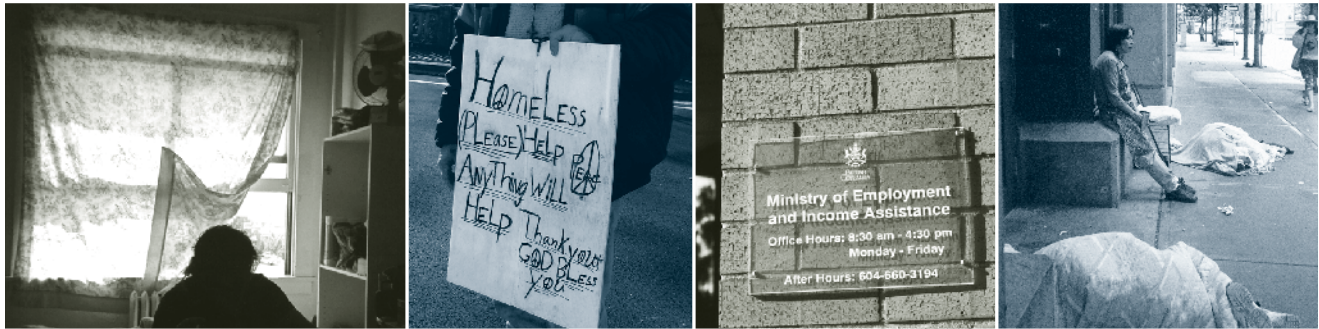 HOMELESS
(PLEASE) HELP
PEACE
ANYTHING WILL
HELP Thank you
GOD BLESS
YOU
BRITISH
COLUMBIA
Ministry of Employment
and Income Assistance
Office Hours: 8:30 am - 4:30 pm
Monday - Friday
After Hours: 604-660-3194